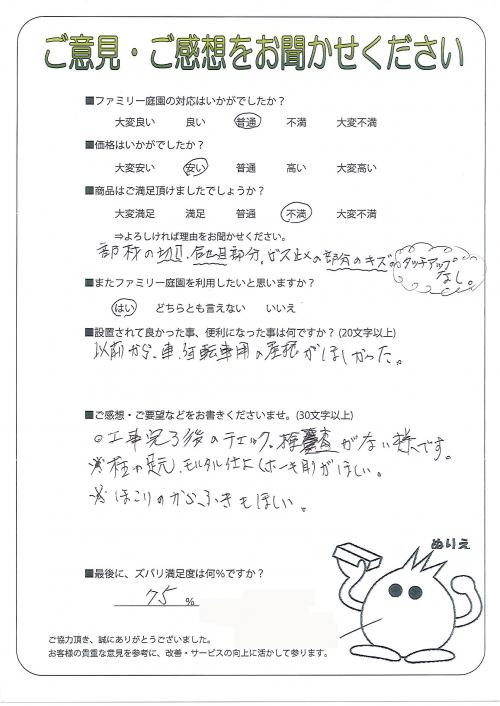 ご意見・ご感想をお聞かせください
■ファミリー庭園の対応はいかがでしたか?
大変良い 良い 普通 不満 大変不満
■価格はいかがでしたか?
大変安い 安い 普通 高い 大変高い
■商品はご満足頂けましたでしょうか?
大変満足 満足 普通 不満 大変不満
⇒よろしければ理由をお聞かせください。
部材の切口、部分、ビス止メの部分のキズのタッチアップなし。
■またファミリー庭園を利用したいと思いますか?
はい どちらとも言えない いいえ
■設置されて良かった事、便利になった事は何ですか?(20文字以上)
以前から、車、自転車用の屋根がほしかった。
■ご感想・ご要望などをお書きくださいませ。(30文字以上)
○工事完了後のチェック、がない様です。
※柱の足元、モルタル仕上(ホーキ目)がほしい。
※ほこりのからぶきもほしい。
ぬりえ
■最後に、ズバリ満足度は何%ですか?
75 %
ご協力頂き、誠にありがとうございました。
お客様の貴重な意見を参考に、改善・サービスの向上に活かして参ります。